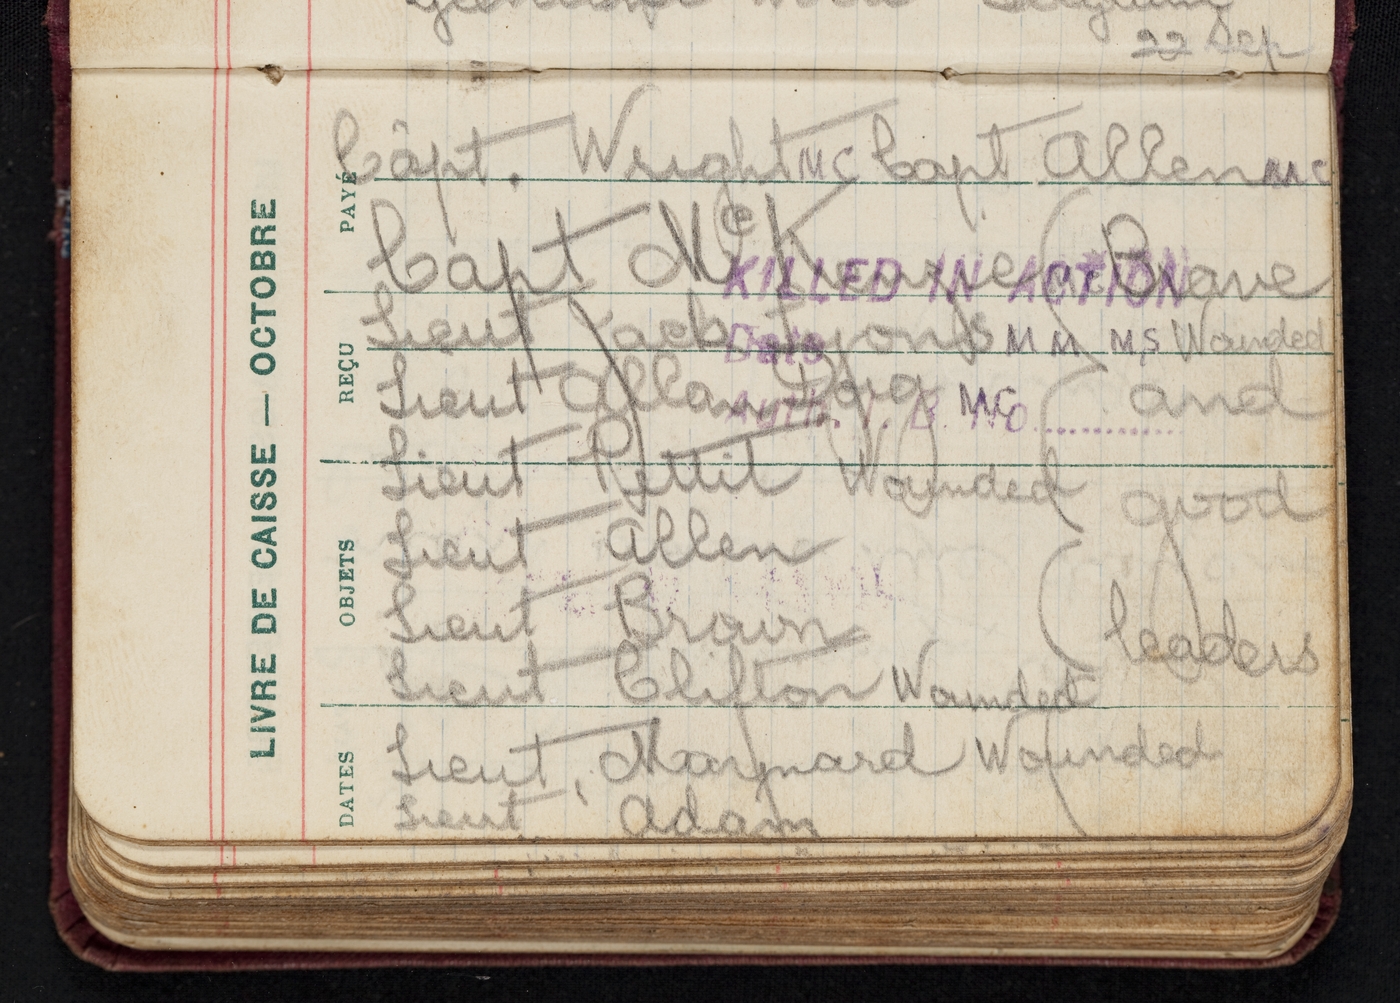 22 Sep
Capt. Wright MC Capt Allen MC
Capt McKenzie Brave
KILLED IN ACTION
Lieut Jack Lyons MM MS Wounded
Date
Lieut Allan Doig MC and
Auth. No. ............
Lieut Pettit Wounded good
Lieut Allen
Lieut Brown leaders
Lieut Clifton Wounded
Lieut, Maynard Wounded
Lieut Adam
LIVRE DE CAISSE — OCTOBRE
DATES OBJETS REÇU PAYÉ